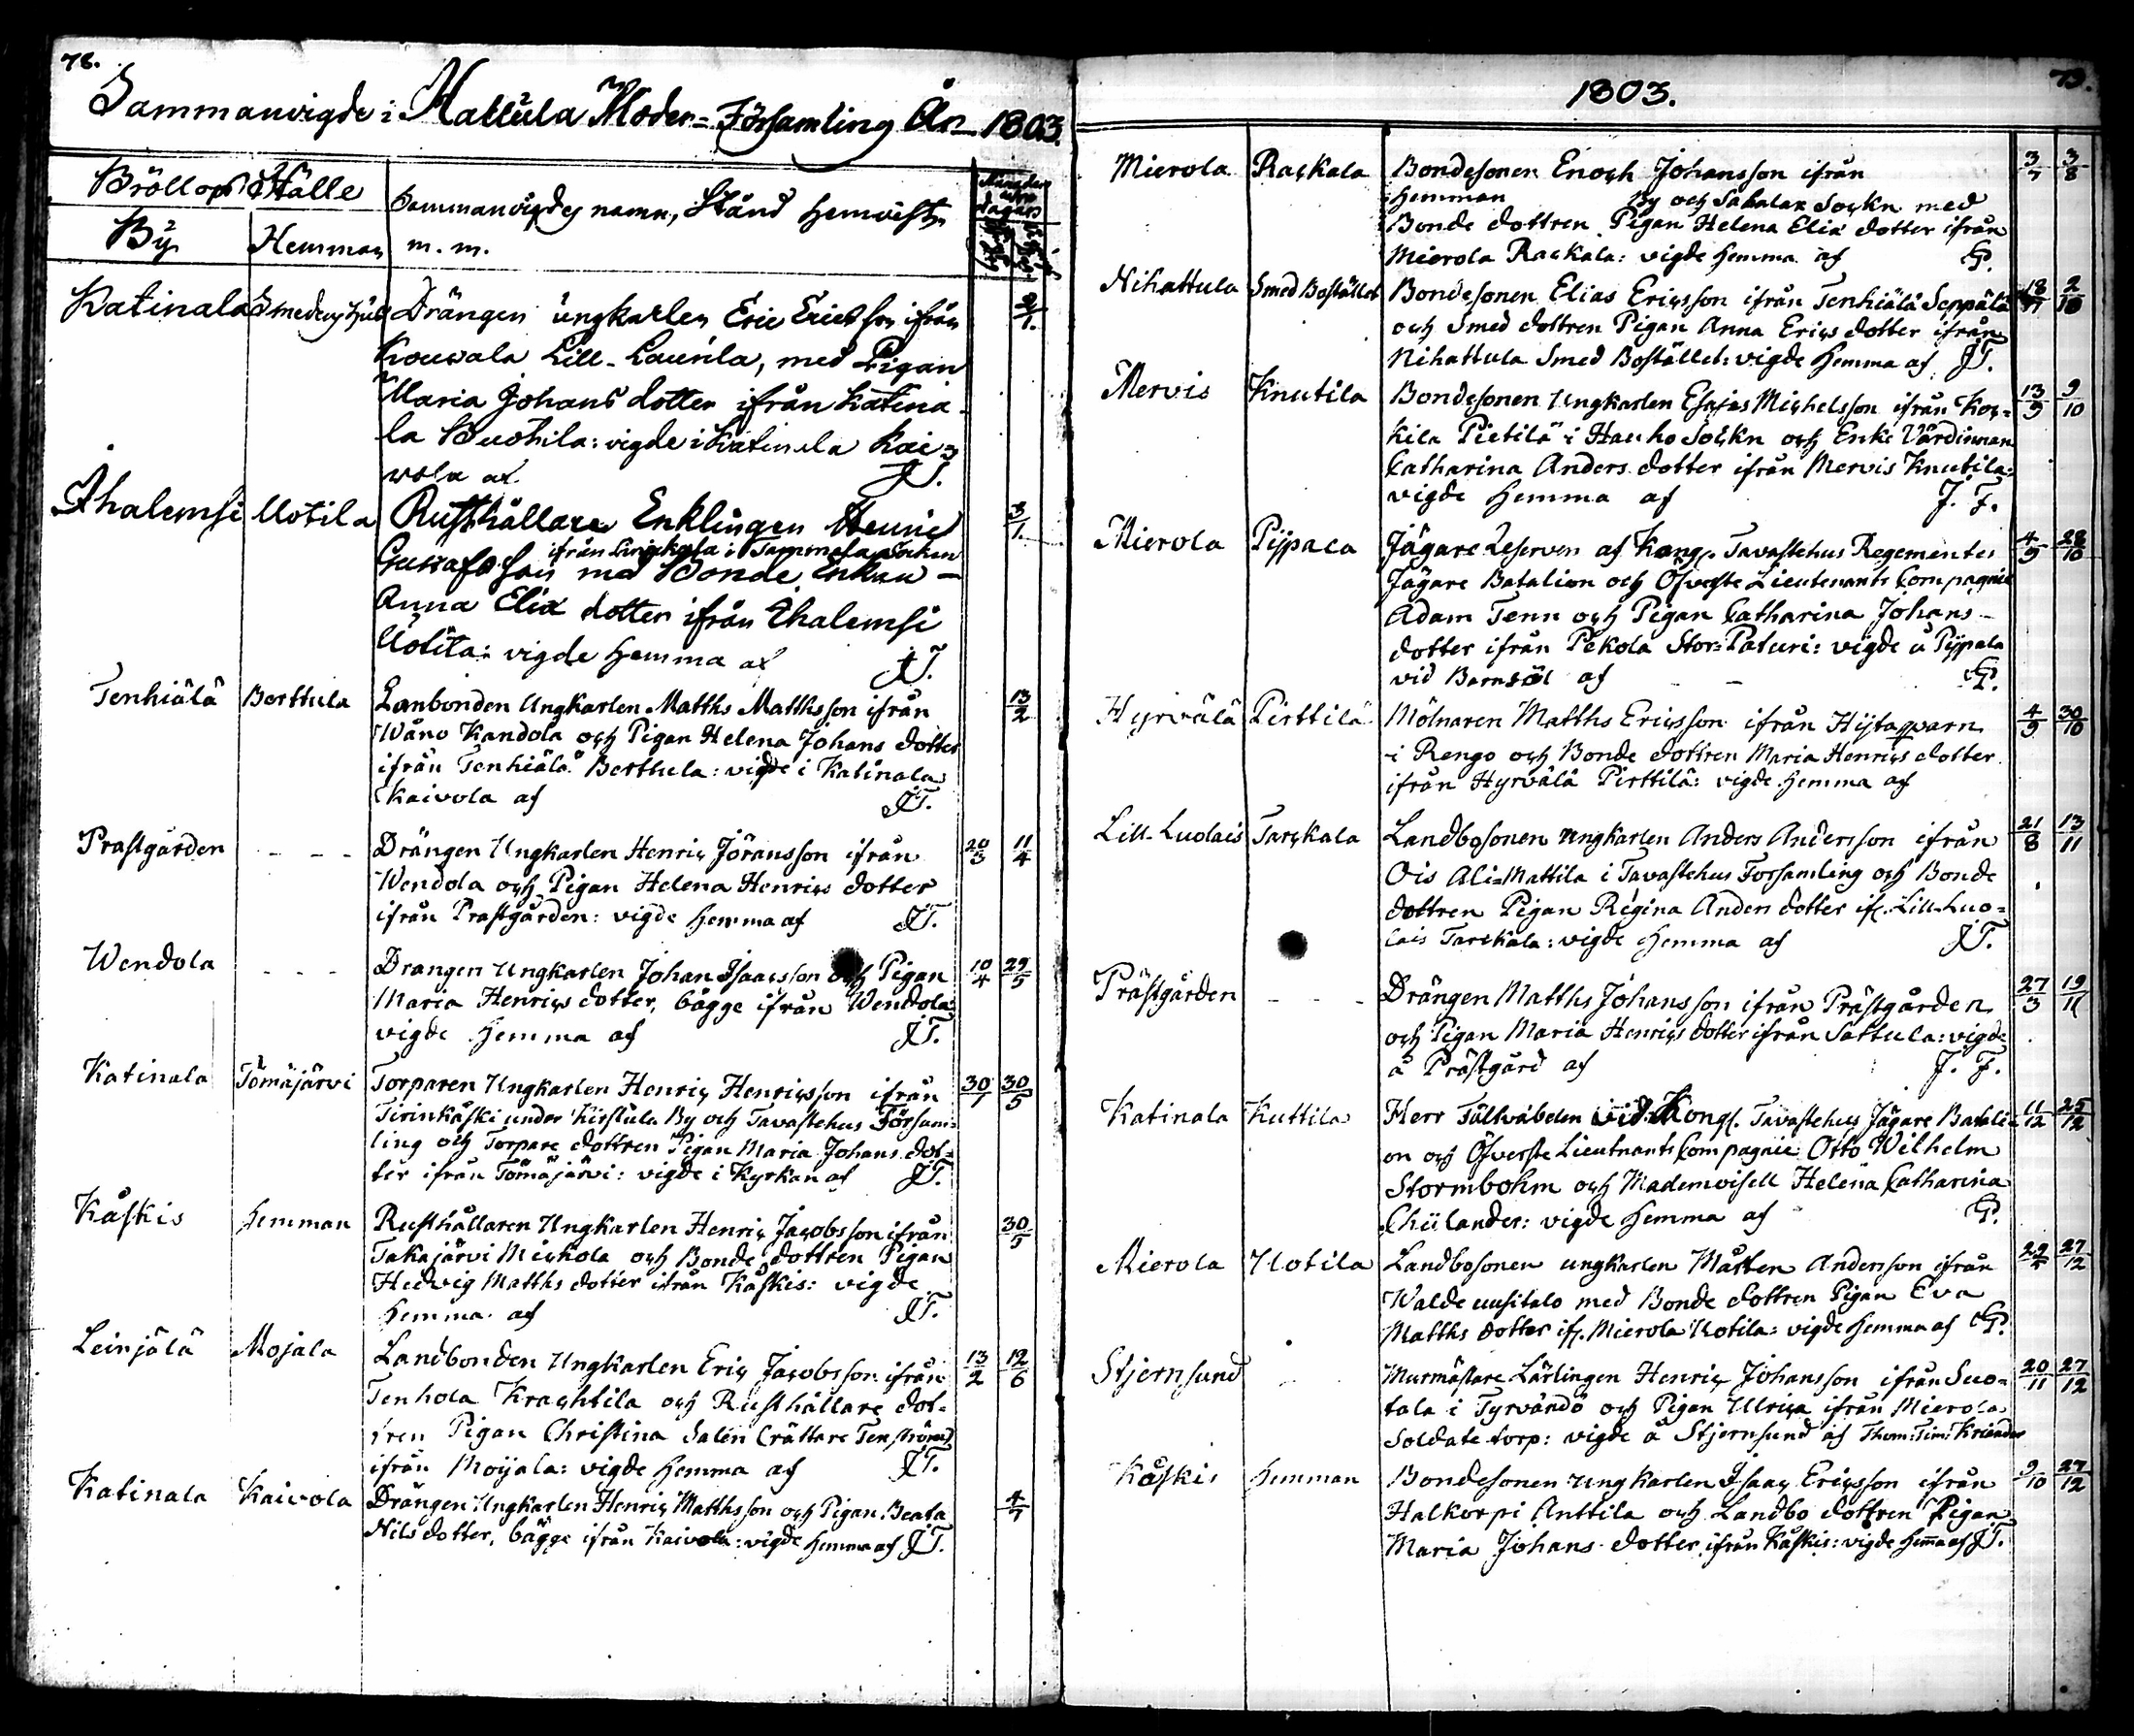 78.
Sammanvigde i Hattula Moder=Församling År 1803.
Bröllops Ställe
By Hemman
Sammanvigdes namn, Stånd hemvist
m. m.
Katinala Smedens hus Drängen ungkarlen Eric Ericsson ifrån 2/1.
Kouvala Lill-Laurila, med Pigan
Maria Johans dotter ifrån Katina-
la Buohila: vigde i Katinala Kai=
vola af JT.
Ihalemsi Uotila Rusthållare Enklingen Henric 3/1.
ifrån i Tammela Socken
Gustafsson med Bonde Enkan -
Anna Eliæ dotter ifrån Ihalemsi
Uotila: vigde hemma af JT.
Tenhiälä Berttula Lanbonden Ungkarlen Matths Mattsson ifrån 13/2
Wåno Kandola och Pigan Helena Johans dotter
ifrån Tenhiälä Berttula: vigde i Katinala
Kaivola af JT.
Prästgården - - - Drängen Ungkarlen Henric Jöransson ifrån 20/3 11/4
Wendola och Pigan Helena Henrics dotter
ifrån Prästgården: vigde hemma af JT.
Wendola - - - Drängen Ungkarlen Johan Isaacsson och Pigan 10/4 29/5
Maria Henrics dotter, bägge ifrån Wendola:
vigde hemma af JT.
Katinala Tömäjärvi Torparen Ungkarlen Henric Henricsson ifrån 30/1 30/5
Tirinkåski under Kirstula By och Tavastehus Försam=
ling och Torpare dottren Pigan Maria Johans dot=
ter ifrån Tömäjärvi: vigde i Kyrkan af JT.
Kåskis hemman Rusthållaren Ungkarlen Henric Jacobsson ifrån 30/5
Takajärvi Mickola och Bonde dottren Pigan
Hedvig Matths dotter ifrån Kåskis: vigde
hemma af JT.
Leinjälä Mojala Landbonden Ungkarlen Eric Jacobsson ifrån 13/2 12/6
Tenhola Krachtila och Rusthållare dot=
tren Pigan Christina Salén
ifrån Moijala: vigde hemma af JT.
Katinala Kaivola Drängen Ungkarlen Henric Matthsson och Pigan Beata 4/7
Nils dotter, bägge ifrån Kaivola: vigde hemma af JT.
79.
1803.
Mierola Rackala Bondesonen Enoch Johansson ifrån 3/7 3/8
hemman By och Sahalax Sockn med
Bonde dottren Pigan Helena Eliæ dotter ifrån
Mierola Rackala: vigde hemma af GP.
Nihattula Smed Bostället Bondesonen Elias Ericsson ifrån Tenhiälä Seppälä 2/10
och Smed dottren Pigan Anna Erics dotter ifrån
Nihattula Smed Bostället: vigde hemma af JT.
Mervis Knutila Bondesonen Ungkarlen Esajas Michelsson ifrån Kos= 13/9 9/10
kila Pietilä i Hauho Sockn och Enke Värdinnan
Catharina Anders dotter ifrån Mervis Knutila:
vigde hemma af J. F.
Mierola Pijpala Jägare Reserven af Kongl. Tavastehus Regementes 4/9 28/10
Jägare Batalion och Öfverste Lieutenants Compagnie
Adam Tenn och Pigan Catharina Johans-
dotter ifrån Pekola Stor-Paturi: vigde å Pijpala
vid Barnsöl af GP.
Hyrvälä Pirttilä Mölnaren Matths Ericsson ifrån Hijtaqvarn 4/9 30/10
i Rengo och Bonde dottren Maria Henrics dotter
ifrån Hyrvälä Pirttilä: vigde hemma af
Lill-Luolais Tarckala Landbosonen Ungkarlen Anders Andersson ifrån 21/8 13/11
Ois Ali-Mattila i Tavastehus Forsamling och Bonde
dottren Pigan Regina Anders dotter ifr. Lill-Luo=
lais Tarckala: vigde hemma af JT.
Prästgården - - - Drängen Matths Johansson ifrån Prästgården 27/3 19/11
och Pigan Maria Henrics dotter ifrån Sattula: vigde
å Prästgård af J. F.
Katinala Kuttila Herr Fältväbelen vid Kongl. Tavastehus Jägare Batali- 11/12 25/12
on och Öfverste Lieutnants Compagnie Otto Wilhelm
Stormbohm och Mademoisell Helena Catharina
Chiilander: vigde hemma af GP.
Mierola Uotila Landbosonen ungkarlen Mårten Andersson ifrån 27/12
Walde uusitalo med Bonde dottren Pigan Eva
Matths dotter ifr. Mierola Uotila: vigde hemma af GP.
Stjernsund - - Murmästare Lärlingen Henric Johansson ifrån Suo= 20/11 27/12
tala i Tyrvändö och Pigan Ulrica ifrån Mierola
Soldate torp: vigde å Stjernsund af Thom: Tim: Kriander
Kåskis hemman Bondesonen Ungkarlen Isaac Ericsson ifrån 9/10 27/12
Halkorpi Anttila och Landbo dottren Pigan
Maria Johans dotter ifrån Kåskis: vigde hemma af JT.